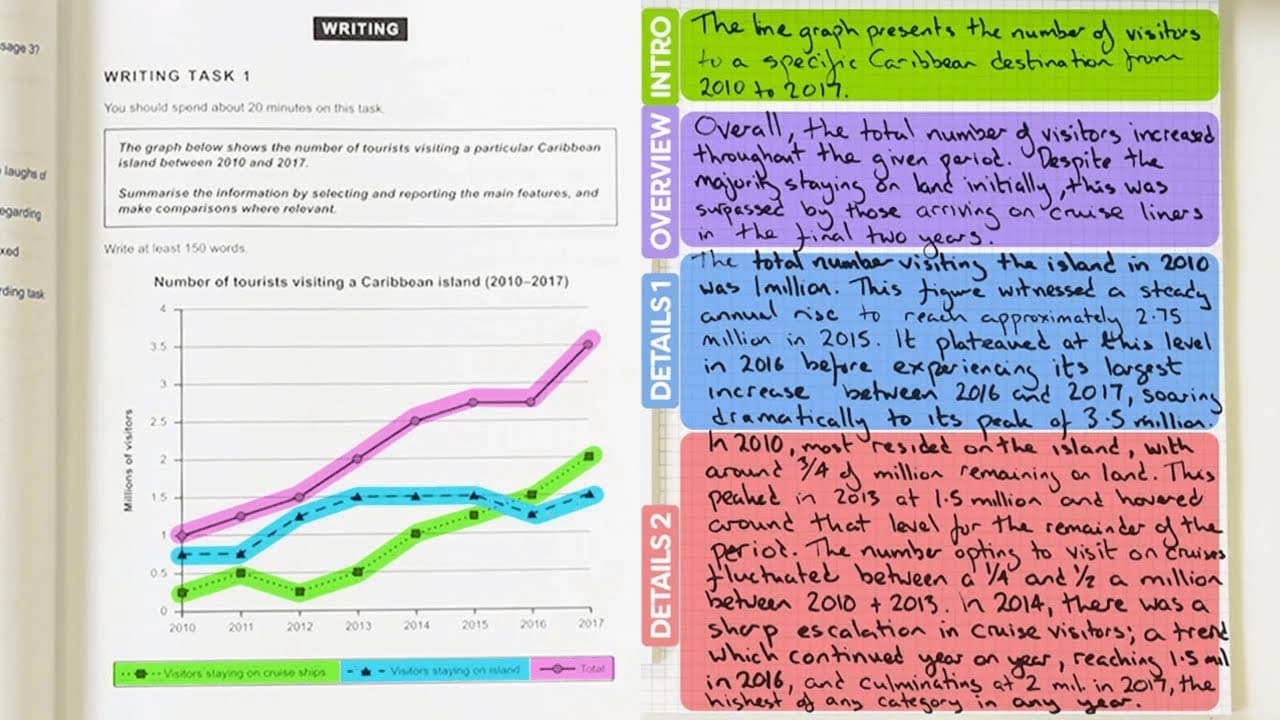 sage 3?
laughs of
egarding
xed
rding task
WRITING
WRITING TASK 1
You should spend about 20 minutes on this task.
The graph below shows the number of tourists visiting a particular Caribbean
island between 2010 and 2017.
Summarise the information by selecting and reporting the main features, and
make comparisons where relevant.
Write at least 150 words.
Number of tourists visiting a Caribbean island (2010–2017)
Millions of visitors
4
3.5
3
2.5
2
1.5
1
0.5
0
2010 2011 2012 2013 2014 2015 2016 2017
Visitors staying on cruise ships Visitors staying on island Total
INTRO
The line graph presents the number of visitors
to a specific Caribbean destination from
2010 to 2017.
OVERVIEW
Overall, the total number of visitors increased
throughout the given period. Despite the
majority staying on land initially, this was
surpassed by those arriving on cruise liners
in the final two years.
DETAILS 1
The total number visiting the island in 2010
was 1million. This figure witnessed a steady
annual rise to reach approximately 2.75
million in 2015. It plateaued at this level
in 2016 before experiencing its largest
increase between 2016 and 2017, soaring
dramatically to its peak of 3.5 million.
DETAILS 2
In 2010, most resided on the island, with
around 3/4 of million remaining on land. This
peaked in 2013 at 1.5 million and hovered
around that level for the remainder of the
period. The number opting to visit on cruises
fluctuated between a 1/4 and 1/2 a million
between 2010 + 2013. In 2014, there was a
sharp escalation in cruise visitors; a trend
which continued year on year, reaching 1.5 mil
in 2016, and culminating at 2 mil. in 2017, the
highest of any category in any year.